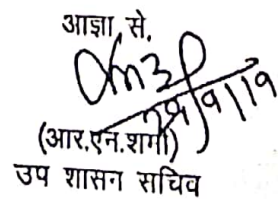 आज्ञा से,
(आर.एन.शर्मा)
उप शासन सचिव